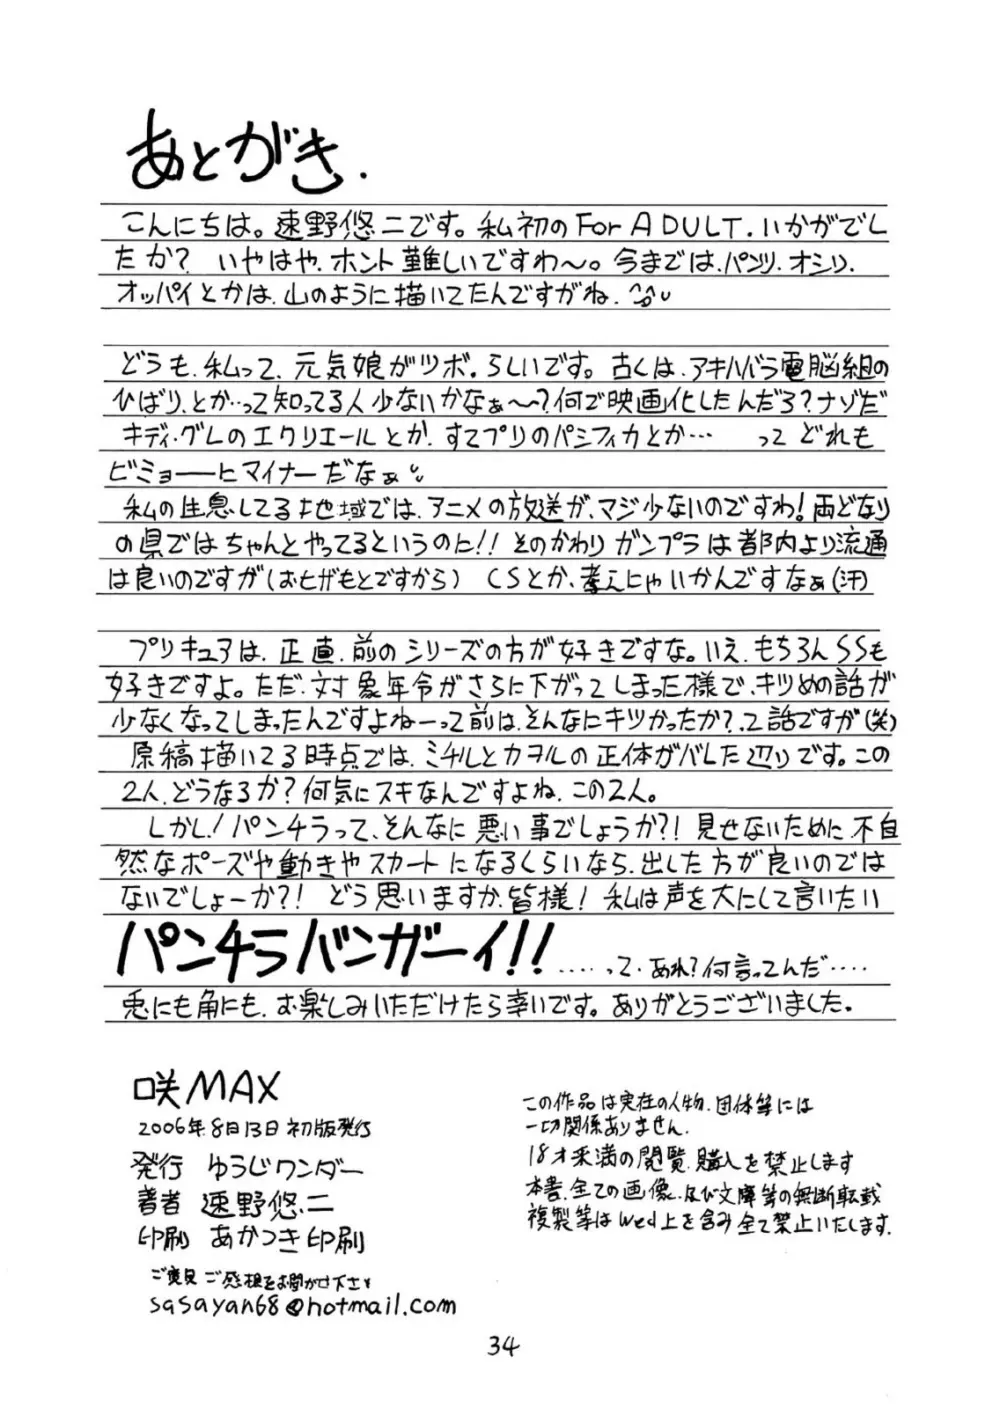 あとがき.
こんにちは。速野悠二です。私初のFor ADULT.いかがでし
たか? いやはや、ホント難しいですわ〜。今までは、パンツ、オシリ、
オッパイとかは、山のように描いてたんですがね.
どうも、私って、元気娘がツボ。らしいです。古くは、アキハバラ電脳組の
ひばり、とか…って知ってる人少ないかなぁ〜?何で映画化したんだろ?ナゾだ
キディ・グレのエクリエールとか、すてプリのパシフィカとか… って どれも
ビミョーーにマイナーだなぁ
私の生息してる地域では、アニメの放送が、マジ少ないのですわ!両どなり
の県ではちゃんとやってるというのに!! そのかわりガンプラは都内より流通
は良いのですが(おヒザもとですから) CSとか、考えにゃいかんですなぁ(汗)
プリキュアは、正直、前のシリーズの方が好きですな。いえ、もちろんSSも
好きですよ。ただ、対象年令がさらに下がってしまった様で、キツめの話が
少なくなってしまったんですよねーって前は、そんなにキツかったか?、て話ですが(笑)
原稿描いてる時点では、ミチルとカヲルの正体がバレした辺りです。この
2人、どうなるか?何気にスキなんですよね、この2人。
しかし!パンチラって、そんなに悪い事でしょうか?!見せないために、不自
然なポーズや動きやスカートになるくらいなら、出した方が良いのでは
ないでしょーか?! どう思いますか、皆様! 私は声を大にして言いたい
パンチラバンガーイ!! ....って、あれ?何言ってんだ....
兎にも角にも、お楽しみいただけたら幸いです。ありがとうございました。
咲MAX
2006年.8月13日 初版発行
発行 ゆうじワンダー
著者 速野悠二
印刷 あかつき印刷
ご意見 ご感想をお聞かせ下さい
sasayan68@hotmail.com
この作品は実在の人物、団体等には
一切関係ありません.
18才未満の閲覧、購入を禁止します
本書、全ての画像、及び文庫等の無断転載
複製等はWed上を含み全て禁止いたします.
34